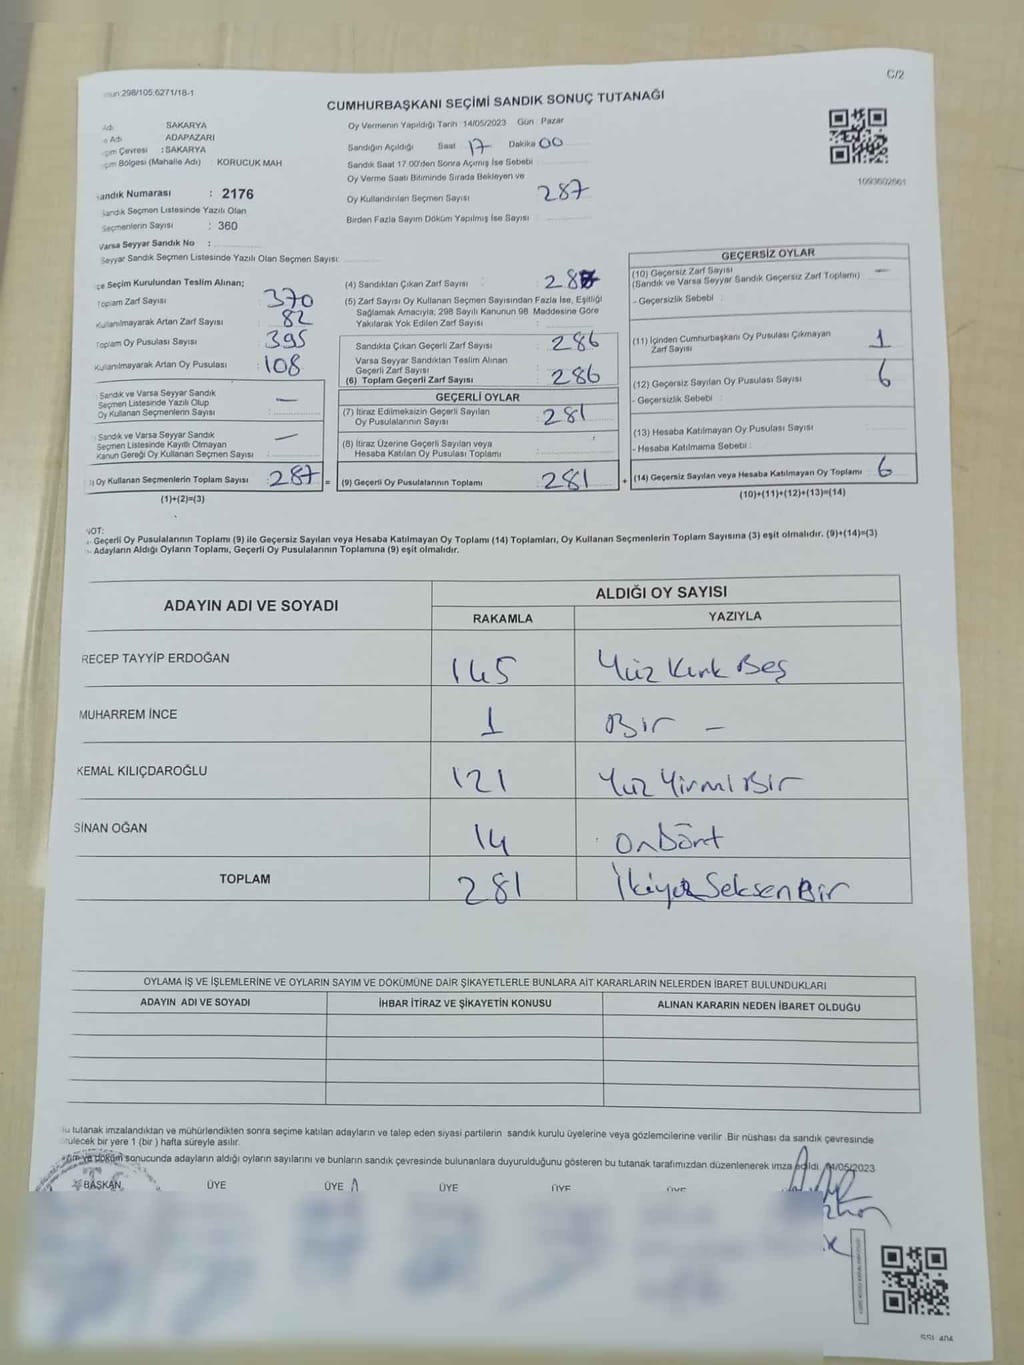 298/105.6271/18-1
C/2
CUMHURBAŞKANI SEÇİMİ SANDIK SONUÇ TUTANAĞI
SAKARYA
Adı ADAPAZARI
Çevresi : SAKARYA
Bölgesi (Mahalle Adı) : KORUCUK MAH
Sandık Numarası : 2176
Sandık Seçmen Listesinde Yazılı Olan
Seçmenlerin Sayısı : 360
Varsa Seyyar Sandık No :
Seyyar Sandık Seçmen Listesinde Yazılı Olan Seçmen Sayısı:
Oy Vermenin Yapıldığı Tarih : 14/05/2023 Gün : Pazar
Sandığın Açıldığı Saat 17 Dakika 00
Sandık Saat 17.00'den Sonra Açımış İse Sebebi
Oy Verme Saati Bitiminde Sırada Bekleyen ve
Oy Kullandırılan Seçmen Sayısı 287
Birden Fazla Sayım Döküm Yapılmış İse Sayısı
1093602661
İlçe Seçim Kurulundan Teslim Alınan;
Toplam Zarf Sayısı 370
Kullanılmayarak Artan Zarf Sayısı 82
Toplam Oy Pusulası Sayısı 395
Kullanılmayarak Artan Oy Pusulası 108
Sandık ve Varsa Seyyar Sandık
Seçmen Listesinde Yazılı Olup
Oy Kullanan Seçmenlerin Sayısı —
Sandık ve Varsa Seyyar Sandık
Seçmen Listesinde Kayıtlı Olmayan
Kanun Gereği Oy Kullanan Seçmen Sayısı —
Oy Kullanan Seçmenlerin Toplam Sayısı 287 =
(1)+(2)=(3)
(4) Sandıktan Çıkan Zarf Sayısı : 287
(5) Zarf Sayısı Oy Kullanan Seçmen Sayısından Fazla İse, Eşitliği
Sağlamak Amacıyla; 298 Sayılı Kanunun 98 Maddesine Göre
Yakılarak Yok Edilen Zarf Sayısı :
Sandıkta Çıkan Geçerli Zarf Sayısı : 286
Varsa Seyyar Sandıktan Teslim Alınan
Geçerli Zarf Sayısı
(6) Toplam Geçerli Zarf Sayısı : 286
GEÇERLİ OYLAR
(7) İtiraz Edilmeksizin Geçerli Sayılan
Oy Pusulasının Sayısı : 281
(8) İtiraz Üzerine Geçerli Sayılan veya
Hesaba Katılan Oy Pusulası Toplamı :
(9) Geçerli Oy Pusulalarının Toplamı : 281 +
GEÇERSİZ OYLAR
(10) Geçersiz Zarf Sayısı —
(Sandık ve Varsa Seyyar Sandık Geçersiz Zarf Toplamı)
- Geçersizlik Sebebi :
(11) İçinden Cumhurbaşkanı Oy Pusulası Çıkmayan
Zarf Sayısı 1
(12) Geçersiz Sayılan Oy Pusulası Sayısı 6
- Geçersizlik Sebebi :
(13) Hesaba Katılmayan Oy Pusulası Sayısı
- Hesaba Katılmama Sebebi :
(14) Geçersiz Sayılan veya Hesaba Katılmayan Oy Toplamı 6
(10)+(11)+(12)+(13)=(14)
NOT:
- Geçerli Oy Pusulalarının Toplamı (9) ile Geçersiz Sayılan veya Hesaba Katılmayan Oy Toplamı (14) Toplamları, Oy Kullanan Seçmenlerin Toplam Sayısına (3) eşit olmalıdır. (9)+(14)=(3)
- Adayların Aldığı Oyların Toplamı, Geçerli Oy Pusulalarının Toplamına (9) eşit olmalıdır.
ADAYIN ADI VE SOYADI ALDIĞI OY SAYISI
RAKAMLA YAZIYLA
RECEP TAYYİP ERDOĞAN 145 Yüz Kırk Beş
MUHARREM İNCE 1 Bir —
KEMAL KILIÇDAROĞLU 121 Yüz Yirmi Bir
SİNAN OĞAN 14 On Dört
TOPLAM 281 İkiyüz Seksen Bir
OYLAMA İŞ VE İŞLEMLERİNE VE OYLARIN SAYIM VE DÖKÜMÜNE DAİR ŞİKAYETLERLE BUNLARA AİT KARARLARIN NELERDEN İBARET BULUNDUKLARI
ADAYIN ADI VE SOYADI İHBAR İTİRAZ VE ŞİKAYETİN KONUSU ALINAN KARARIN NEDEN İBARET OLDUĞU
Bu tutanak imzalandıktan ve mühürlendikten sonra seçime katılan adayların ve talep eden siyasi partilerin sandık kurulu üyelerine veya gözlemcilerine verilir. Bir nüshası da sandık çevresinde
bir yere 1 (bir) hafta süreyle asılır.
ve döküm sonucunda adayların aldığı oyların sayılarını ve bunların sandık çevresinde bulunanlara duyurulduğunu gösteren bu tutanak tarafımızdan düzenlenerek imza edildi. 14/05/2023
BAŞKAN ÜYE ÜYE ÜYE ÜYE ÜYE